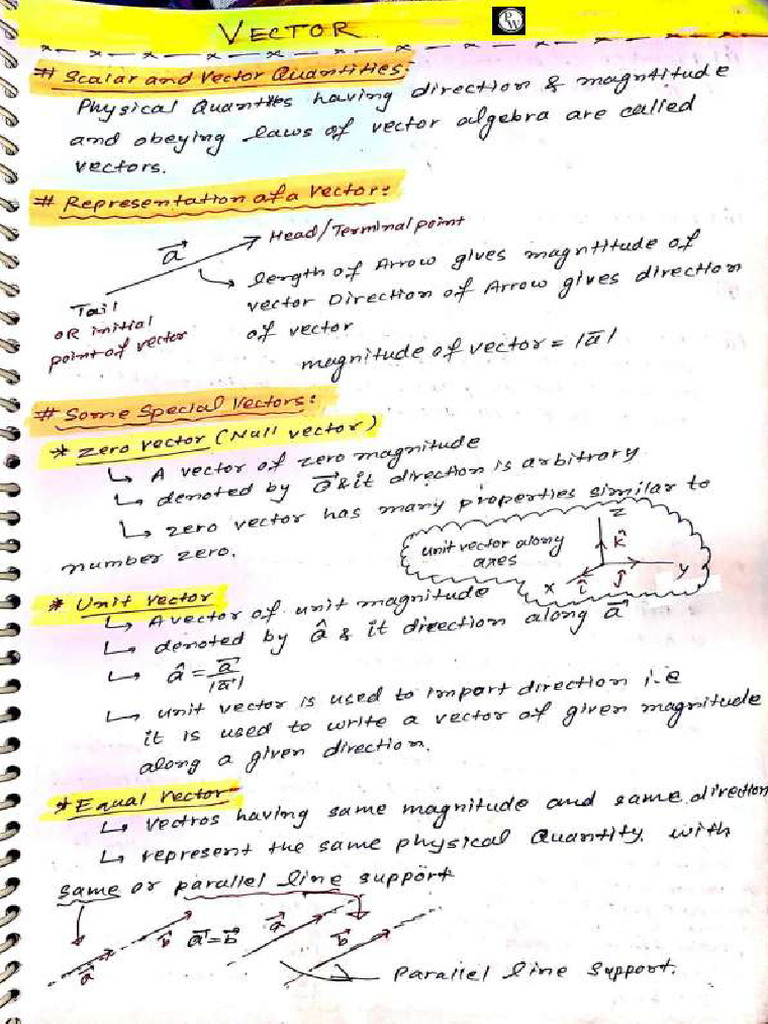 VECTOR
PW
# Scalar and Vector Quantities:
Physical Quantites having direction & magntitude
and obeying laws of vector algebra are called
vectors.
# Representation of a Vector:
a⃗
Head/Terminal point
length of Arrow gives magntitude of
Tail
OR initial
point of vector
vector Direction of Arrow gives direction
of vector
magnitude of vector = |a⃗|
# Some Special Vectors:
* Zero vector (Null vector)
↳ A vector of zero magnitude
↳ denoted by o⃗ & it direction is arbitrary
↳ zero vector has many properties similar to
number zero.
unit vector along
axes
z
k̂
x
î
ĵ
y
* Unit vector
↳ A vector of unit magnitude
↳ denoted by â & it direction along a⃗
↳ â = a⃗/|a⃗|
↳ unit vector is used to impart direction i.e
it is used to write a vector of given magnitude
along a given direction.
* Equal Vector
↳ vectros having same magnitude and same direction
↳ represent the same physical Quantity with
same or parallel line support
a⃗
b⃗
a⃗ = b⃗
a⃗
b⃗
Parallel line support.